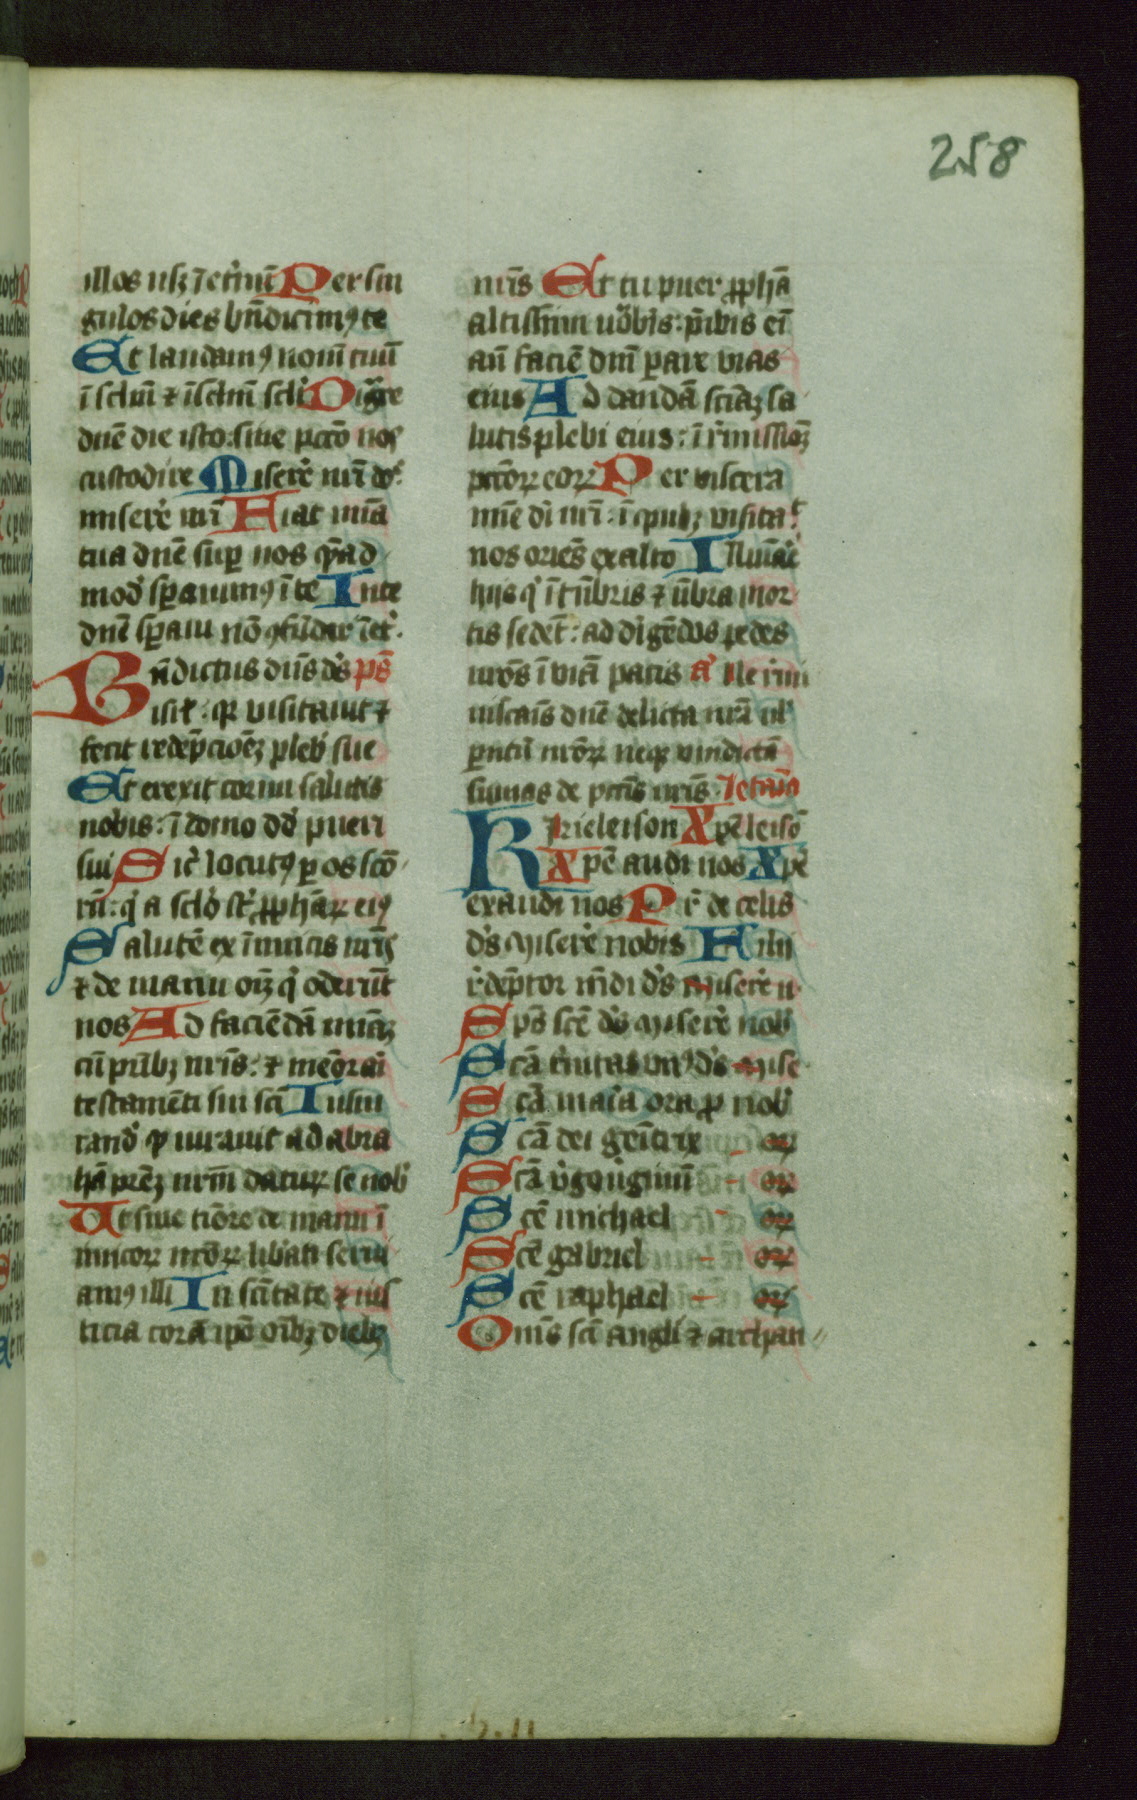 258
illos usqꝫ ī et̓nū Per sin
gulos dies bn̄dicimꝯ te
Et laudamꝯ nomē tuū
ī sclm̄ ⁊ ī sclm̄ scli Dig̓re
dn̄e die isto: sine pctō nos
custodire Miserē nr̄i dn̄e:
miserē nr̄i Fiat mīa
tua dn̄e suꝑ nos qͣ̄ad
mod̓ sꝑauimꝯ ī te In te
dn̄e sꝑaui nō ꝯfūdar ī et̓.
Bn̄dictus dn̄s ds̄ ps̄
isrl̄: qꝛ visitauit ⁊
fecit redēpcioēꝫ pleb̓ sue
Et erexit cornu salutis
nobis: ī domo dd̓ pueri
sui Sic̓ locutꝯ ꝑ os scō
rū: q̓ a sclo̓ st̓ ꝓphaꝝ eiꝯ
Salutē ex īimicis nr̄is
⁊ de manu oīm q̓ oderūt
nos Ad faciēdā mīaꝫ
cū pr̄ibꝫ nr̄is: ⁊ mēorai
testamēti sui scī Iusiu
rand̓ qͩ iurauit ad abra
hā prēꝫ nrm̄ daturꝝ se nob̓
Ut sine tīore de manu ī
imicoꝝ nrōꝝ lib̓ati serui
amꝯ illi In scītate ⁊ ius
ticia corā ipō oībꝫ diebꝫ
nr̄is Et tu puer ꝓphā
altissimi vōb̓is: p̄ibis eī
an̄ faciē dn̄i ꝑare vias
eius Ad dandā sciāꝫ sa
lutis plebi eius: ī r̓missioꝫ
pctōꝝ eoꝝ Per viscera
mīe di nr̄i: ī qͥbuꝫ visitaᷣ
nos oriēs ex alto Illuīa᷒e
hijs q̓ ī tn̄bris ⁊ ūbra mor
tis sedēt: ad dīgēdos pedes
nrōs ī viā pacis a᷒ Ne rīni
niscaīs dn̄e delicta nrā ul̓
parntū nrōꝝ neqꝫ vindictā
sumas de pctīs nrīs Letaīa
Kirieleison Xpēleisō
Xpē audi nos Xpē
exaudi nos Pr̄ de celis
ds̄ miserē nobis Fili
r̓dēptor mūdi ds̄ miserē n
Sps̄ scē ds̄ miserē nob̓
Scā t̓nitas vnꝯ ds̄ mise
Scā maīa ora ꝓ nob̓
Scā dei geītrix oꝝ
Scā v̓go v̓ginū oꝝ
Scē michael oꝝ
Scē gabriel oꝝ
Scē raphael oꝝ
Omēs scī angli ⁊ archan